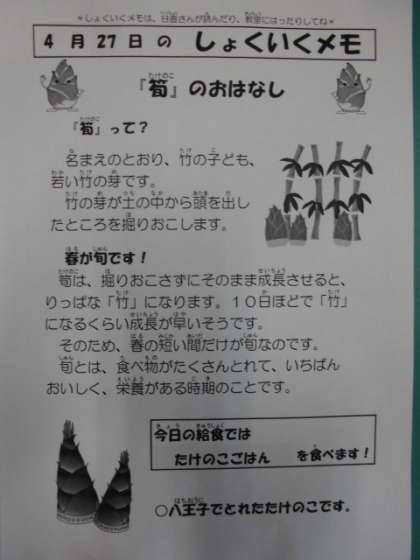 ＊しょくいくメモは、日直さんが読んだり、教室にはったりしてね＊
４月27日の しょくいくメモ
『筍』のおはなし
『筍』って？
名まえのとおり、竹の子ども、
若い竹の芽です。
竹の芽が土の中から頭を出し
たところを掘りおこします。
春が旬です！
筍は、掘りおこさずにそのまま成長させると、
りっぱな「竹」になります。１０日ほどで「竹」
になるくらい成長が早いそうです。
そのため、春の短い間だけが旬なのです。
旬とは、食べ物がたくさんとれて、いちばん
おいしく、栄養がある時期のことです。
今日の給食では
たけのこごはん を食べます！
○八王子でとれたたけのこです。